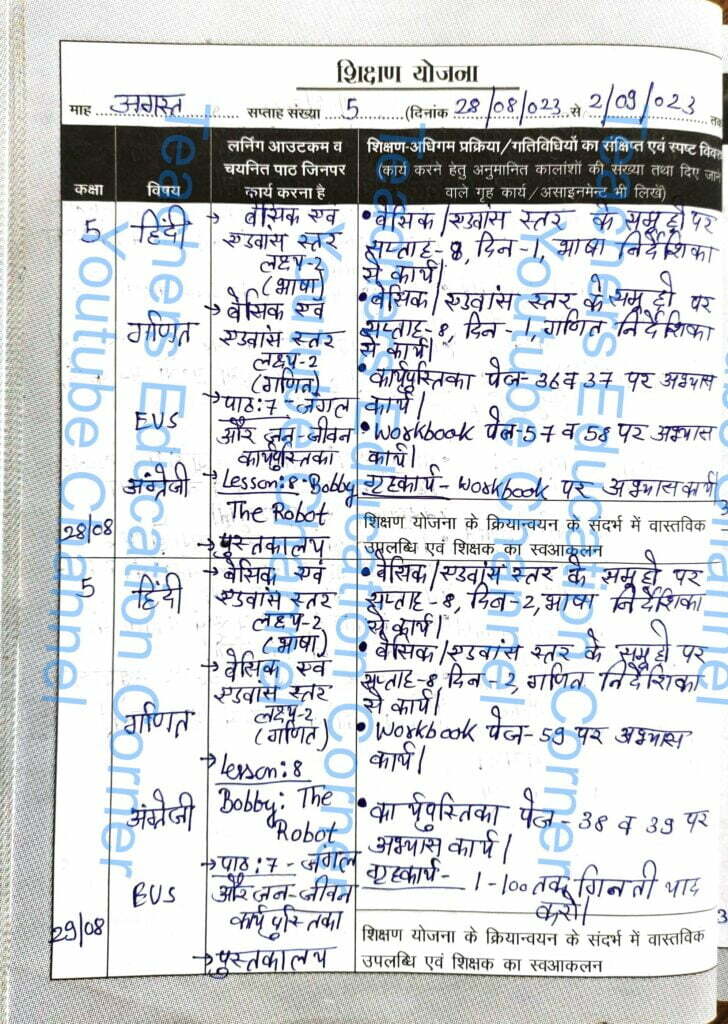 शिक्षण योजना
माह अगस्त सप्ताह संख्या 5 (दिनांक 28/08/023 से 2/09/023
कक्षा
विषय
लर्निंग आउटकम व
चयनित पाठ जिनपर
कार्य करना है
शिक्षण-अधिगम प्रक्रिया/गतिविधियों का संक्षिप्त एवं स्पष्ट
(कार्य करने हेतु अनुमानित कालांशों की संख्या तथा दिए
वाले गृह कार्य/असाइनमेंट भी लिखें)
5
हिंदी
→ बेसिक एवं
एडवांस स्तर
लक्ष्य-2
(भाषा)
• बेसिक/एडवांस स्तर के समूहों पर
सप्ताह-8, दिन-1, भाषा निर्देशिका
से कार्य।
गणित
→ बेसिक एवं
एडवांस स्तर
लक्ष्य-2
(गणित)
• बेसिक/एडवांस स्तर के समूहों पर
सप्ताह-8, दिन-1, गणित निर्देशिका
से कार्य।
EVS
→ पाठ:7 - जंगल
और जन-जीवन
कार्यपुस्तिका
• कार्यपुस्तिका पेज-36 व 37 पर अभ्यास
कार्य।
अंग्रेजी
→ Lesson:8-Bobby
The Robot
• Workbook पेज-57 व 58 पर अभ्यास
कार्य।
गृहकार्य- Workbook पर अभ्यास कार्य।
28/08
→ पुस्तकालय
शिक्षण योजना के क्रियान्वयन के संदर्भ में वास्तविक
उपलब्धि एवं शिक्षक का स्वआकलन
5
हिंदी
→ बेसिक एवं
एडवांस स्तर
लक्ष्य-2
(भाषा)
• बेसिक/एडवांस स्तर के समूहों पर
सप्ताह-8, दिन-2, भाषा निर्देशिका
से कार्य।
गणित
→ बेसिक एवं
एडवांस स्तर
लक्ष्य-2
(गणित)
• बेसिक/एडवांस स्तर के समूहों पर
सप्ताह-8 दिन-2, गणित निर्देशिका
से कार्य।
अंग्रेजी
→ Lesson:8
Bobby: The
Robot
• Workbook पेज-59 पर अभ्यास
कार्य।
EVS
→ पाठ:7 - जंगल
और जन-जीवन
कार्य पुस्तिका
• कार्यपुस्तिका पेज-38 व 39 पर
अभ्यास कार्य।
गृहकार्य- 1-100 तक गिनती याद
करो।
29/08
→ पुस्तकालय
शिक्षण योजना के क्रियान्वयन के संदर्भ में वास्तविक
उपलब्धि एवं शिक्षक का स्वआकलन
Teachers Education Corner
Youtube Channel
Teachers Education Corner
Youtube Channel